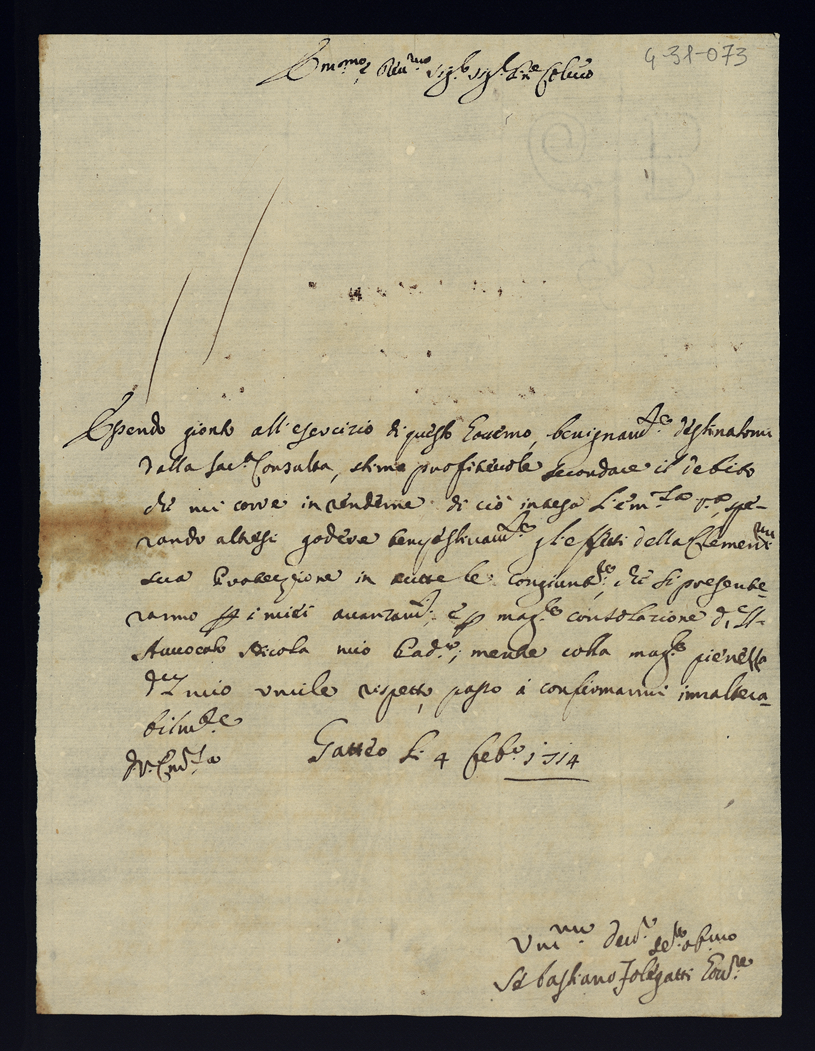 4-31-073
Em.mo e Rev.mo Sig.r Sig.r P.ne Col.mo
Essendo gionto all'esercizio di questo Governo, benignam.te destinatomi
dalla Sac.a Consulta, stimo profittevole secondare il debito
che mi corre in renderne di ciò intesa l'Em.za V.a, spe-
rando altresì godere gli effetti della Clemen.ma
sua Protezzione in tutte le congiunt.e, che si presente-
ranno p i miei avanzam.ti, e p mag.re consolazione d
Avvocato Nicola mio Pad.e; mentre colla mag.re pienezza
del mio umile rispetto, passo à confirmarmi inaltera-
bilm.te
D V. Em.za Gatteo li 4 Feb.o 1714
Um.mo Dev.o Se.re ob.mo
Sebastiano Folegatti Gov.re